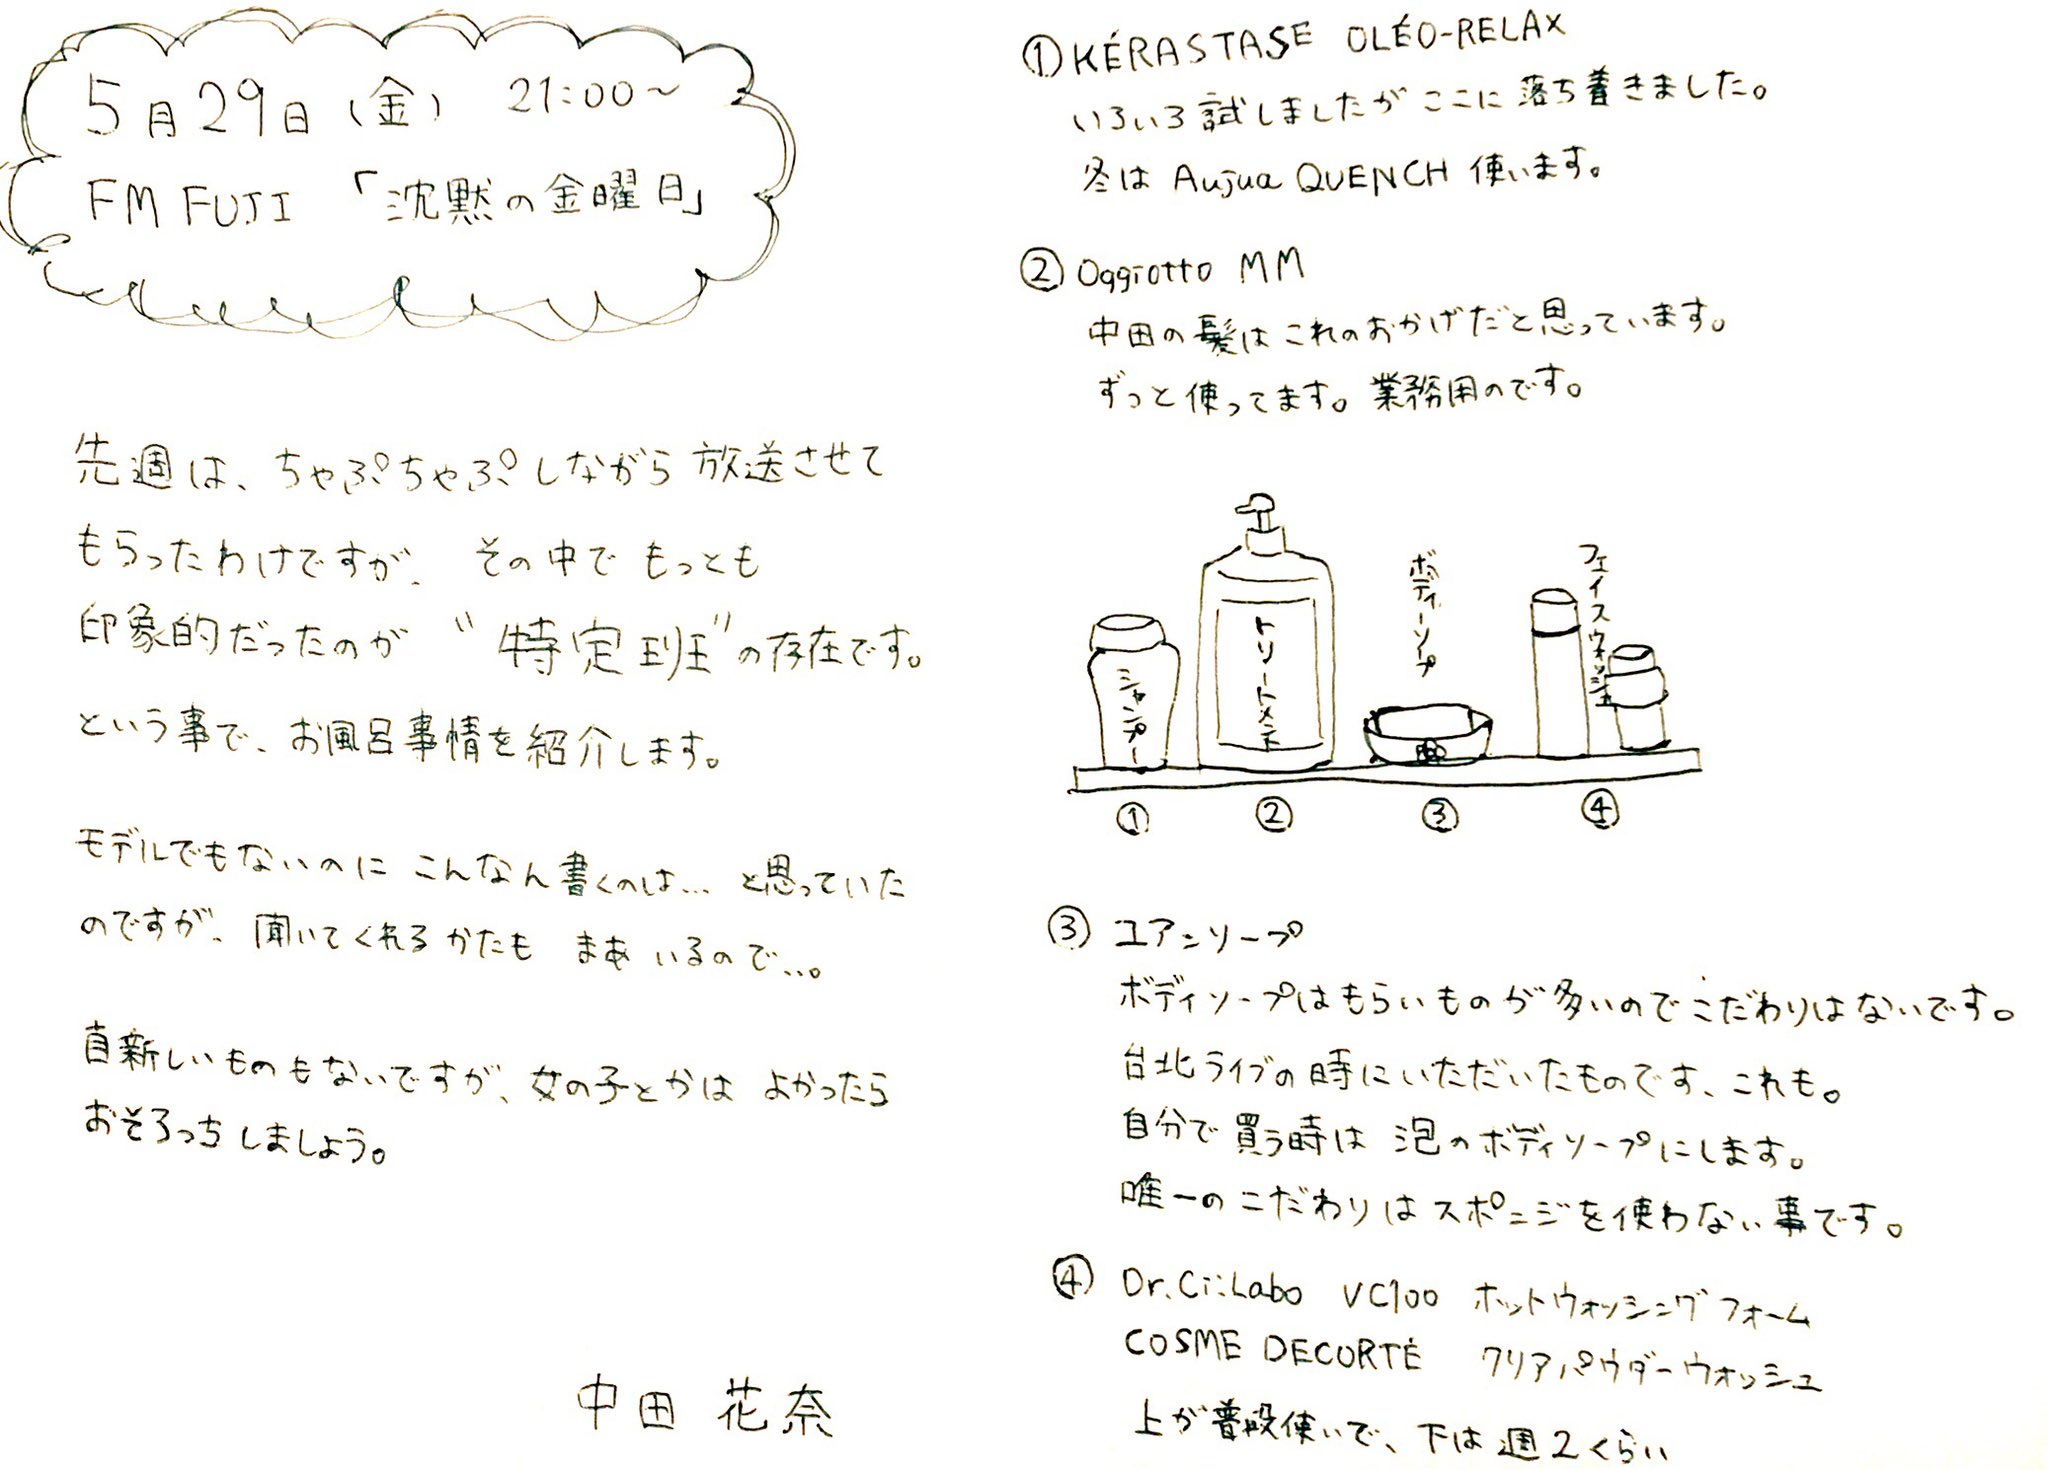 5月29日(金) 21:00〜
FM FUJI 「沈黙の金曜日」
先週は、ちゃぷちゃぷしながら放送させて
もらったわけですが、その中でもっとも
印象的だったのが “特定班”の存在です。
という事で、お風呂事情を紹介します。
モデルでもないのに こんなん書くのは… と思っていた
のですが、聞いてくれるかたも まあ いるので…。
目新しいものもないですが、女の子とかは よかったら
おそろっちしましょう。
中田 花奈
① KÉRASTASE OLÉO-RELAX
いろいろ試しましたが ここに落ち着きました。
冬は Aujua QUENCH 使います。
② Oggiotto MM
中田の髪は これのおかげだと思っています。
ずっと使ってます。業務用のです。
シャンプー
トリートメント
ボディーソープ
フェイスウォッシュ
① ② ③ ④
③ ユアンソープ
ボディソープはもらいものが多いのでこだわりはないです。
台北ライブの時にいただいたものです、これも。
自分で買う時は 泡のボディソープにします。
唯一のこだわりはスポンジを使わない事です。
④ Dr.Ci:Labo VC100 ホットウォッシングフォーム
COSME DECORTÉ クリアパウダーウォッシュ
上が普段使いで、下は週2くらい